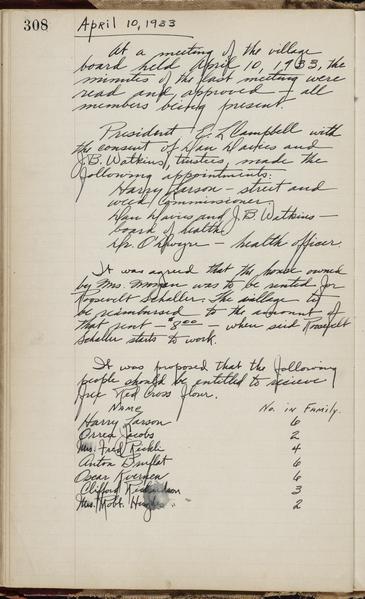 308
April 10, 1933
At a meeting of the village
board held April 10, 1933, the
minutes of the last meeting were
read and approved - all
members being present.
President E. L. Campbell with
the consent of Dan Davies and
J.B. Watkins, trustees, made the
following appointments:
Harry Larson - street and
weed Commissioner,
Dan Davies and J.B. Watkins -
board of health
Dr. O'Dwyre - health officer.
It was agreed that the house owned
by Mrs. was to be rented for
Roosevelt Schaller. The village to
be reimbursed to the amount of
that rent - $8.00 - when said Roosevelt
Schaller starts to work.
It was proposed that the following
people should be entitled to receive
free Red Cross flour.
Name No. in Family.
Harry Larson 6
Orrea Jacobs 2
Mrs. Fred Rickli 4
Anton 6
Oscar Iverson 6
Clifford Richardson 3
Mrs. Robt. Hughes 2